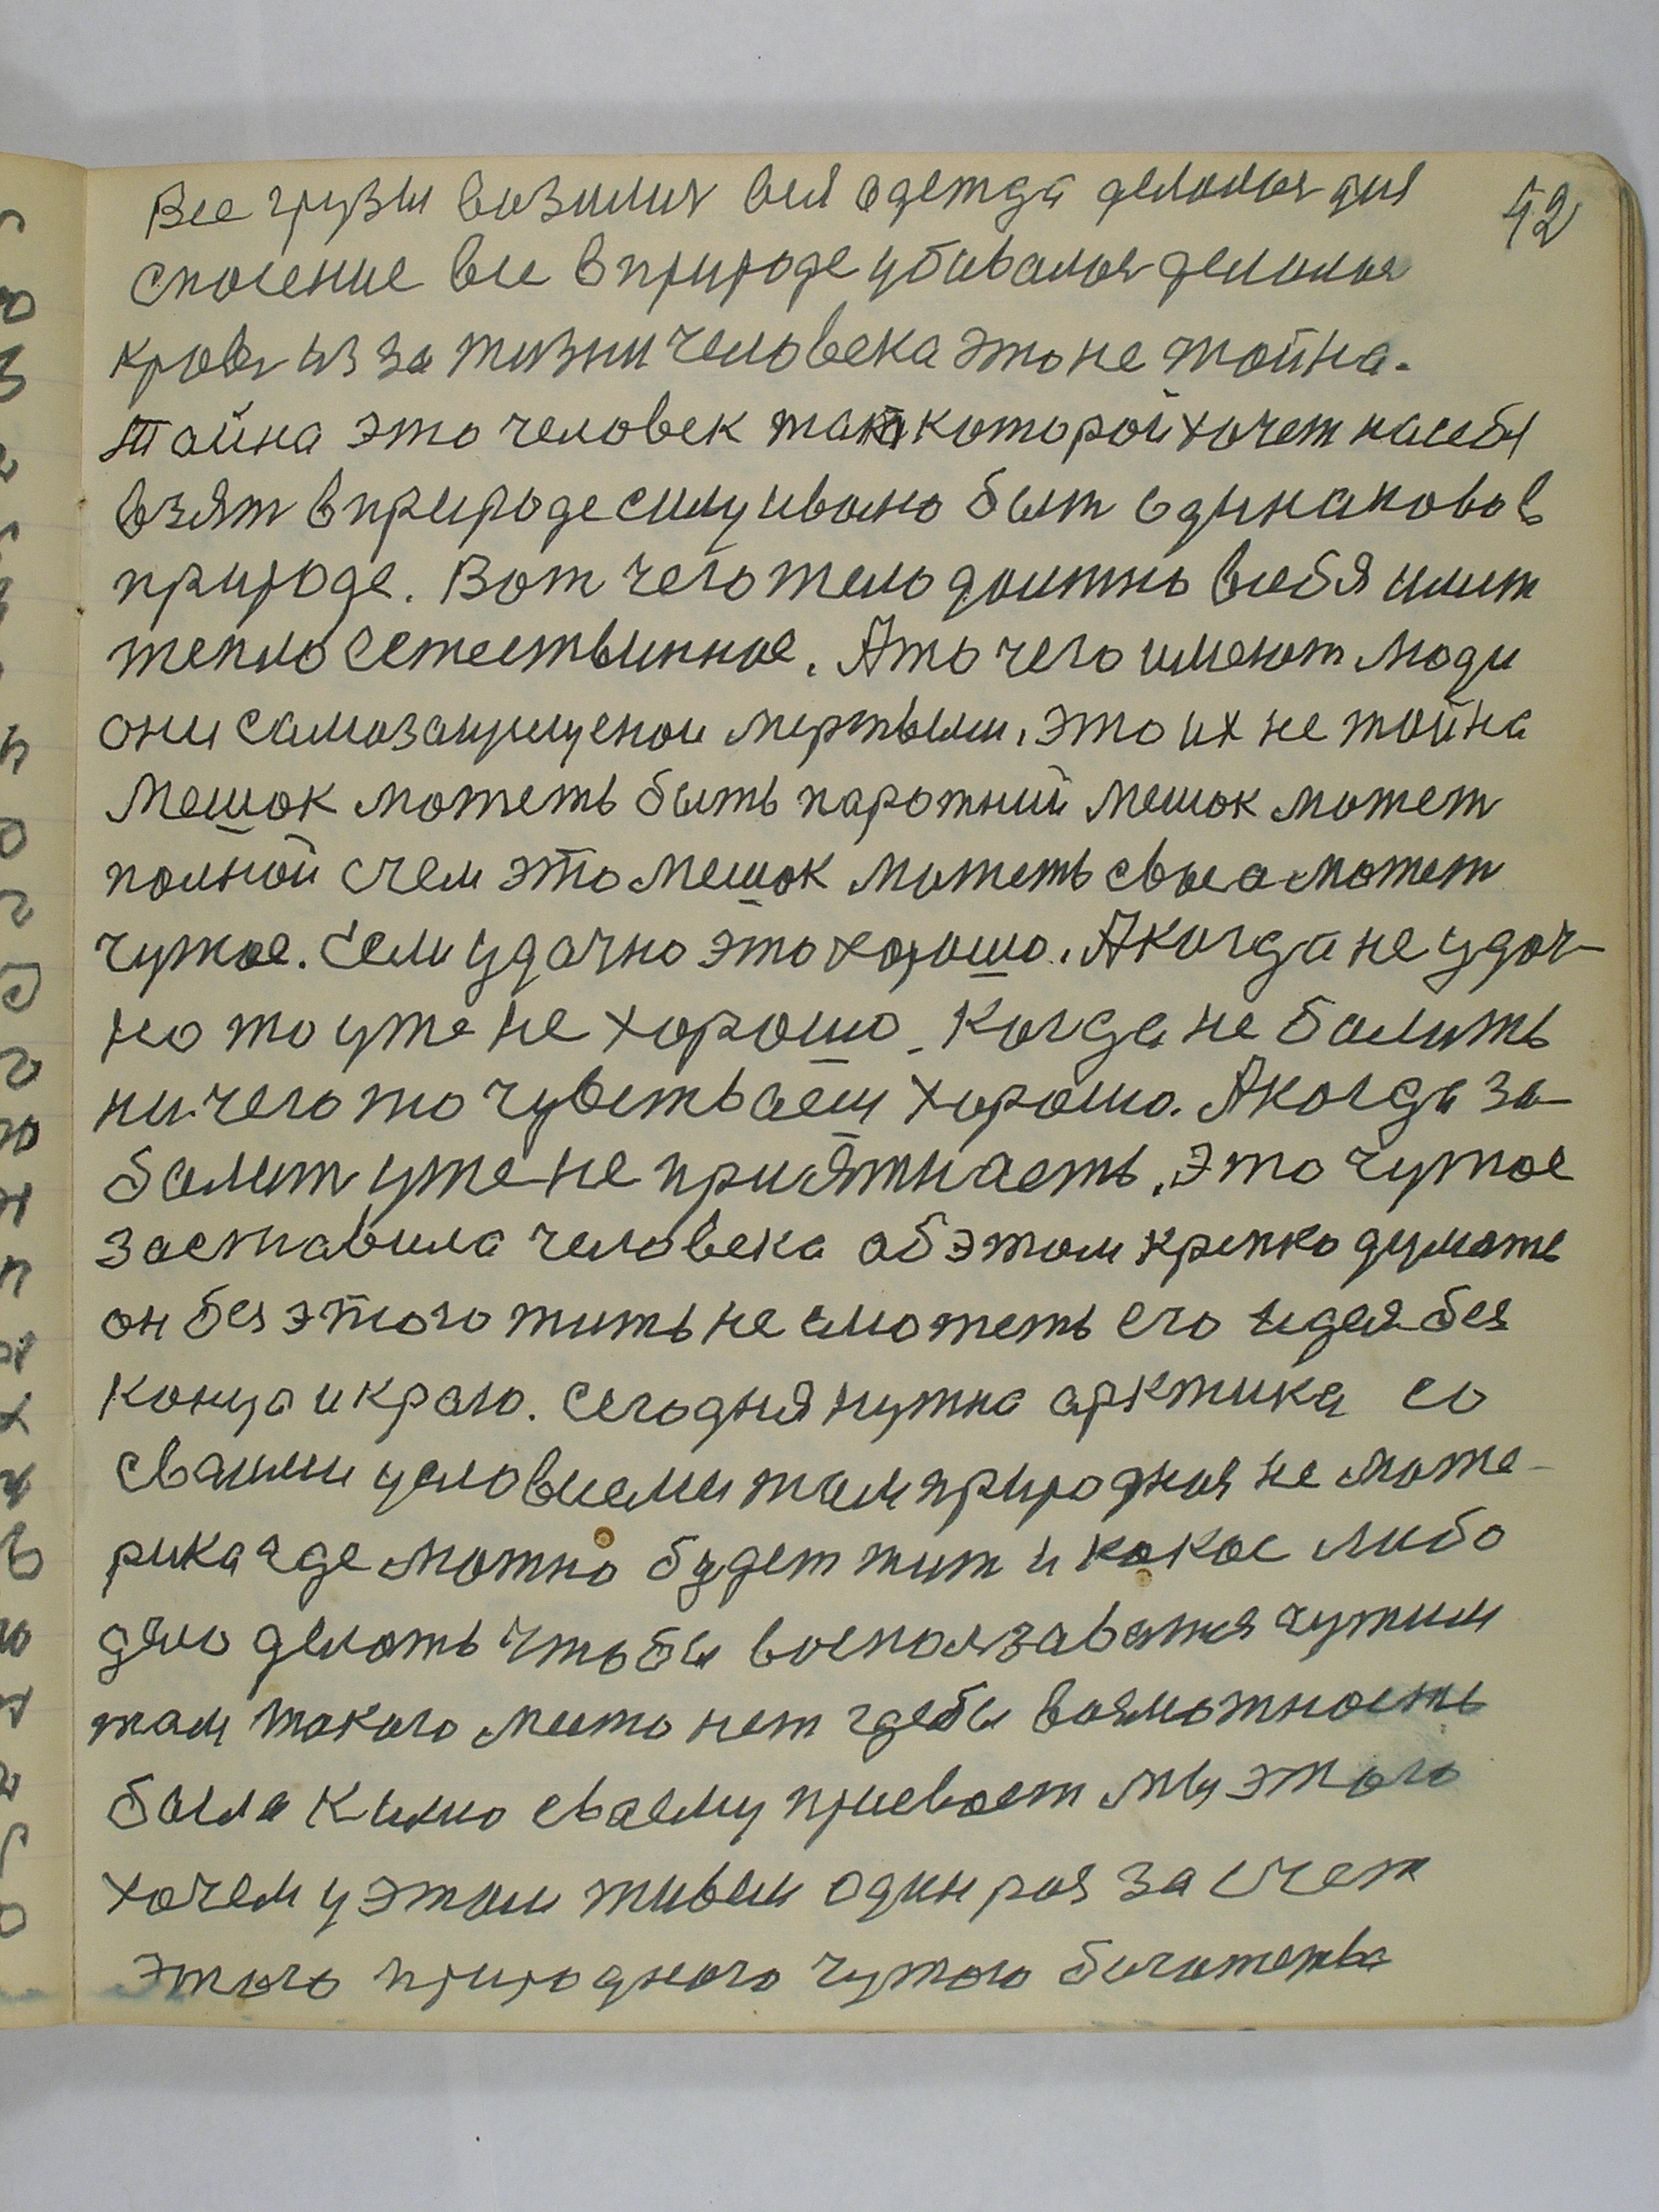 42
Все грузы вазилися вся одежда делалася для
спасение все в природе убивалося делалося
кровь из за жизни человека это не тайна.
Тайна это человек такой которой хочет на себя
взят в природе силу и волю быт одинаково в
природе. Вот чего тело должно в себя имит
тепло естествинное. А то чего имеют люди
они самозащищеной мертвым, это их не тайна
Мешок можеть быть парожний мешок может
полной с чем это мешок можеть свое а может
чужое. Если удачно это хорошо. А когда не удач-
но то уже не хорошо. Когда не балить
ничего то чувствваеш хорошо. А когда за
балит уже не приятнасть. Это чужое
заставила человека об этом крепко думать
он без этого жить не сможеть его идея без
конца и краю. Сегодня нужна арктика со
сваими условиеми там природная не мате-
рика где можно будет жит и какое либо
дело делать чтобы воспользаватся чужим
там такого места нет где бы возможность
была к имю сваему присвоет мы этого
хочем у этом живем один раз за счет
этого природного чужого багатства